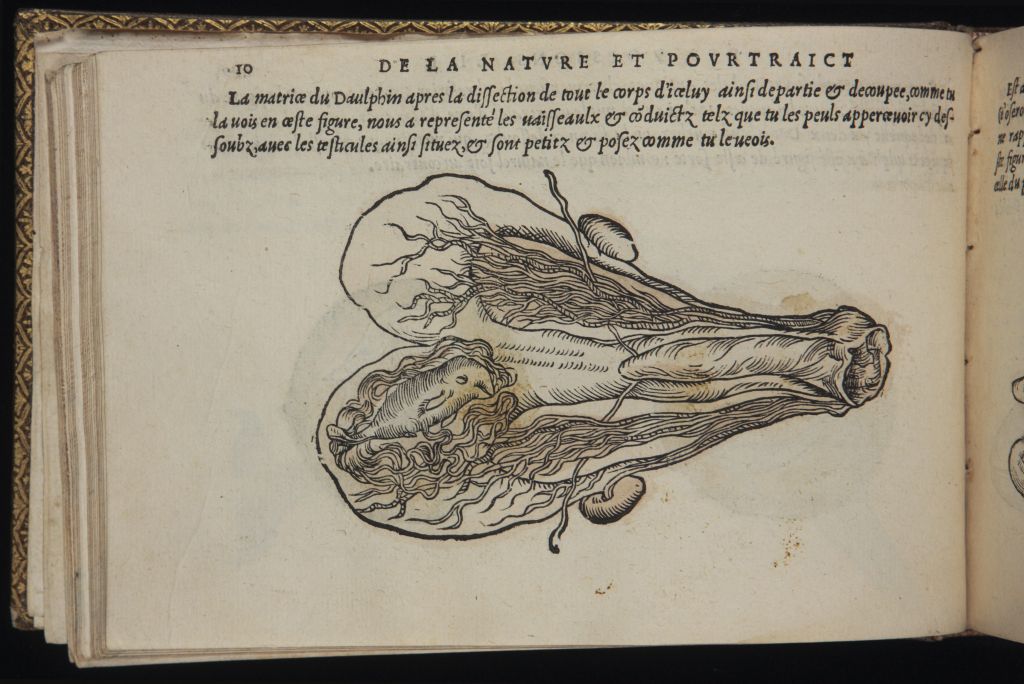 10 DE LA NATVRE ET POVRTRAICT
La matrice du Daulphin apres la dissection de tout le corps d'iceluy ainsi departie & decoupee, comme tu
la vois en ceste figure, nous a representé les vaisseaulx & cõduictz telz que tu les peuls appercevoir cy des-
soubz, avec les testicules ainsi situez, & sont petitz & posez comme tu le veois.
Est
ne rap